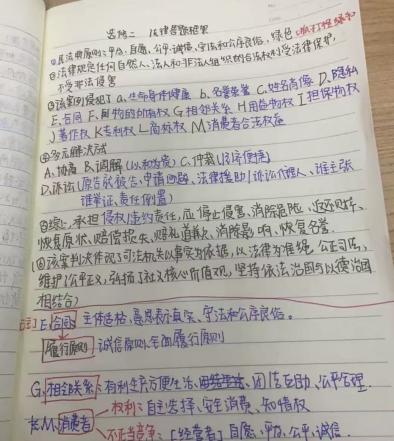 总结二 法律答题框架
①民法典原则:平均、自愿、公平、诚信、守法和公序良俗、绿色
②法律规定任何自然人、法人和非法人组织的合法权利受法律保护,
不受非法侵害
③该案例侵犯了a、生命身体健康 b、名誉荣誉 C、姓名肖像 D、隐私
E、合同 F、财物的所有权 G相邻关系 H用益物权 I担保物权
J著作权 K专利权 L商标权 M消费者合法权益
④多元解决方式
A、协商 B、调解(以和为贵) C、仲裁
D、诉讼(原告or被告、申请回避、法律援助/诉讼代理人、谁主张
谁举证、责任倒置)
⑤综上,承担侵权/违约责任,应停止侵害、消除危险、返还财产、
恢复原状、赔偿损失、赔礼道歉、消除影响、恢复名誉.
(⑥该案判决体现了司法机关以事实为依据,以法律为准绳,公正司法,
维护公平正义,弘扬了社会核心价值观,坚持依法治国与以德治国
相结合)
E合同 主体适格、意思表示真实、守法和公序良俗。
履行原则 诚信原则、全面履行原则
G、相邻关系:有利生产方便生活、团结互助、公平合理.
M、消费者 权利:自主选择、安全消费、知情权
不正当竞争:[经营者]自愿、平等、公平、诚信.